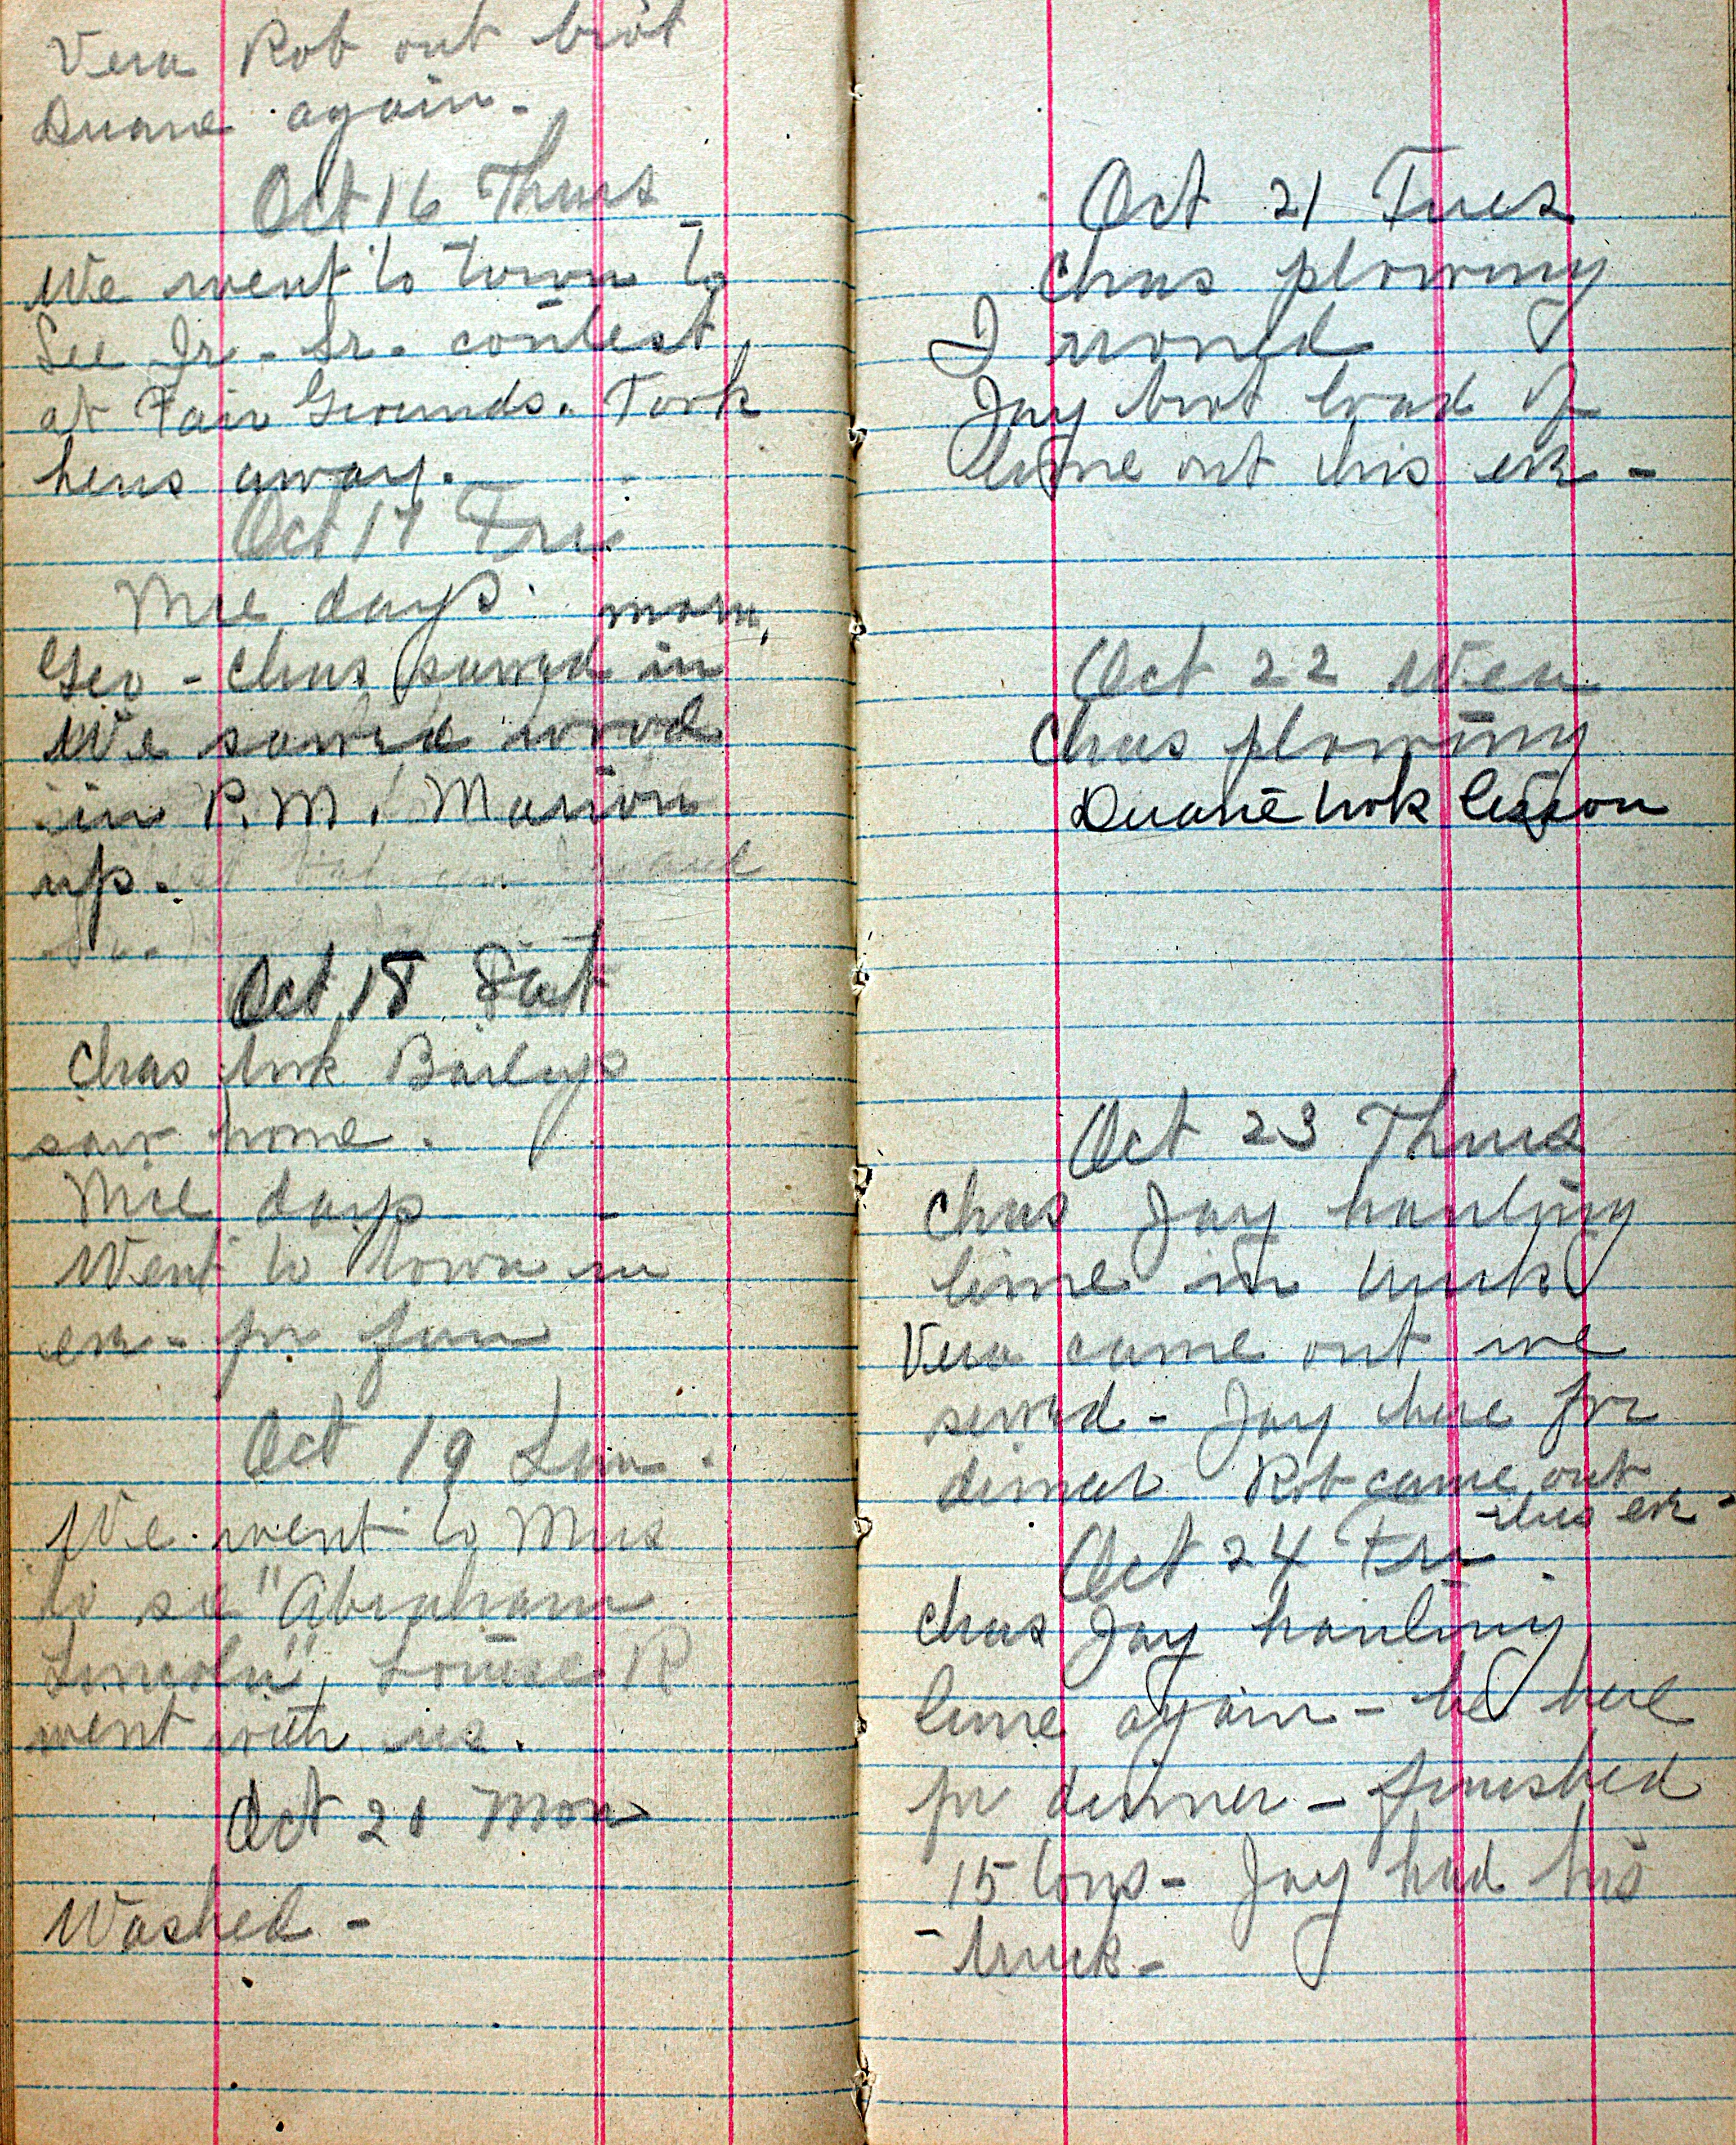 Vera Rob out brot
Duane again -
Oct 16 Thurs
We went to town to
see Jr - Sr - contest
at Fair Grounds. Took
hens away.
Oct 17 Fri
Nice day.
Geo - Chas sawed in morn,
We sawed wood
in P.M. Marion
up.
Sr.
Oct 18 Sat
Chas took Baileys
saw home.
Nice day
Went to town in
eve - for fun
Oct 19 Sun.
We went to Mus
to see "Abraham
Lincoln", Louise R
went with us.
Oct 20 Mon
Washed -
Oct 21 Tues
Chas plowing
I ironed
Jay brot load of
lime out this eve -
Oct 22 Wen
Chas plowing
Duane took lesson
Oct 23 Thurs
Chas Jay hauling
lime in truck
Vera came out we
sewed - Jay here for
dinner Rob came out
this eve -
Oct 24 Fri
Chas Jay hauling
lime again - he here
for dinner - finished
15 tons - Jay had his
- truck -